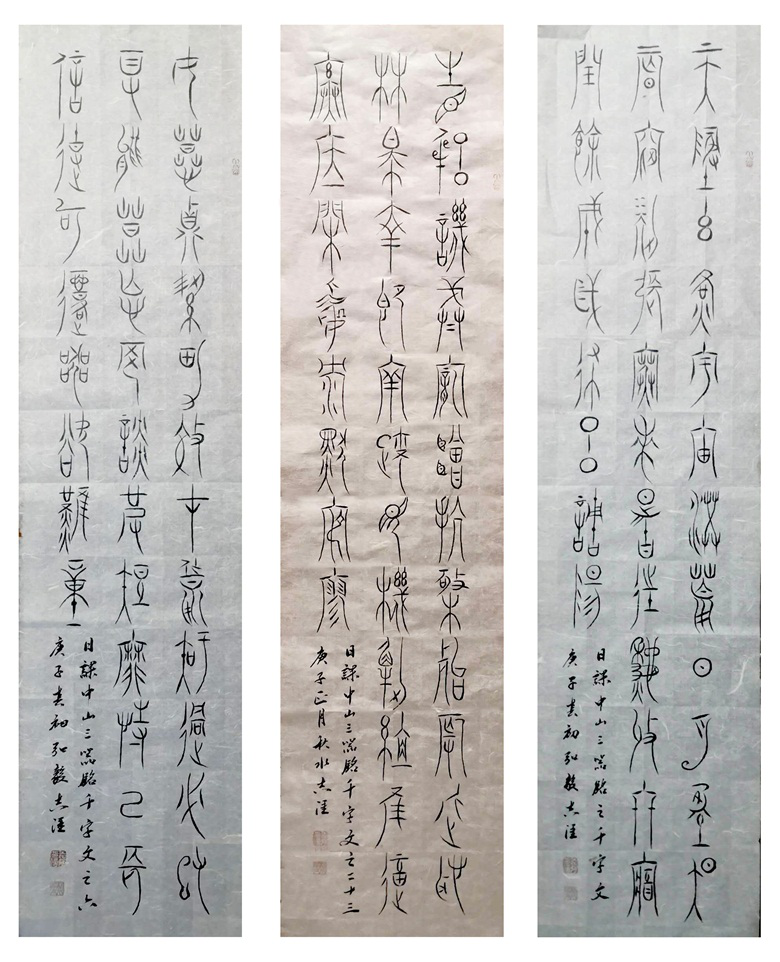 天地玄黄宇宙洪荒日月盈昃
辰宿列張寒來暑往秋收冬藏
閏餘成歲律呂調陽
日課中山三器銘之千字文
庚子春初弘毅志
省躬譏誡寵增抗極殆辱近恥
林皋幸即兩疏見機解組誰逼
索居閒處沉默寂寥
日課中山三器銘千字文之二十三
庚子正月秋水志
女慕貞絜男效才良知過必改
得能莫忘罔談彼短靡恃己長
信使可覆器欲難量
日課中山三器銘千字文之六
庚子春初弘毅志